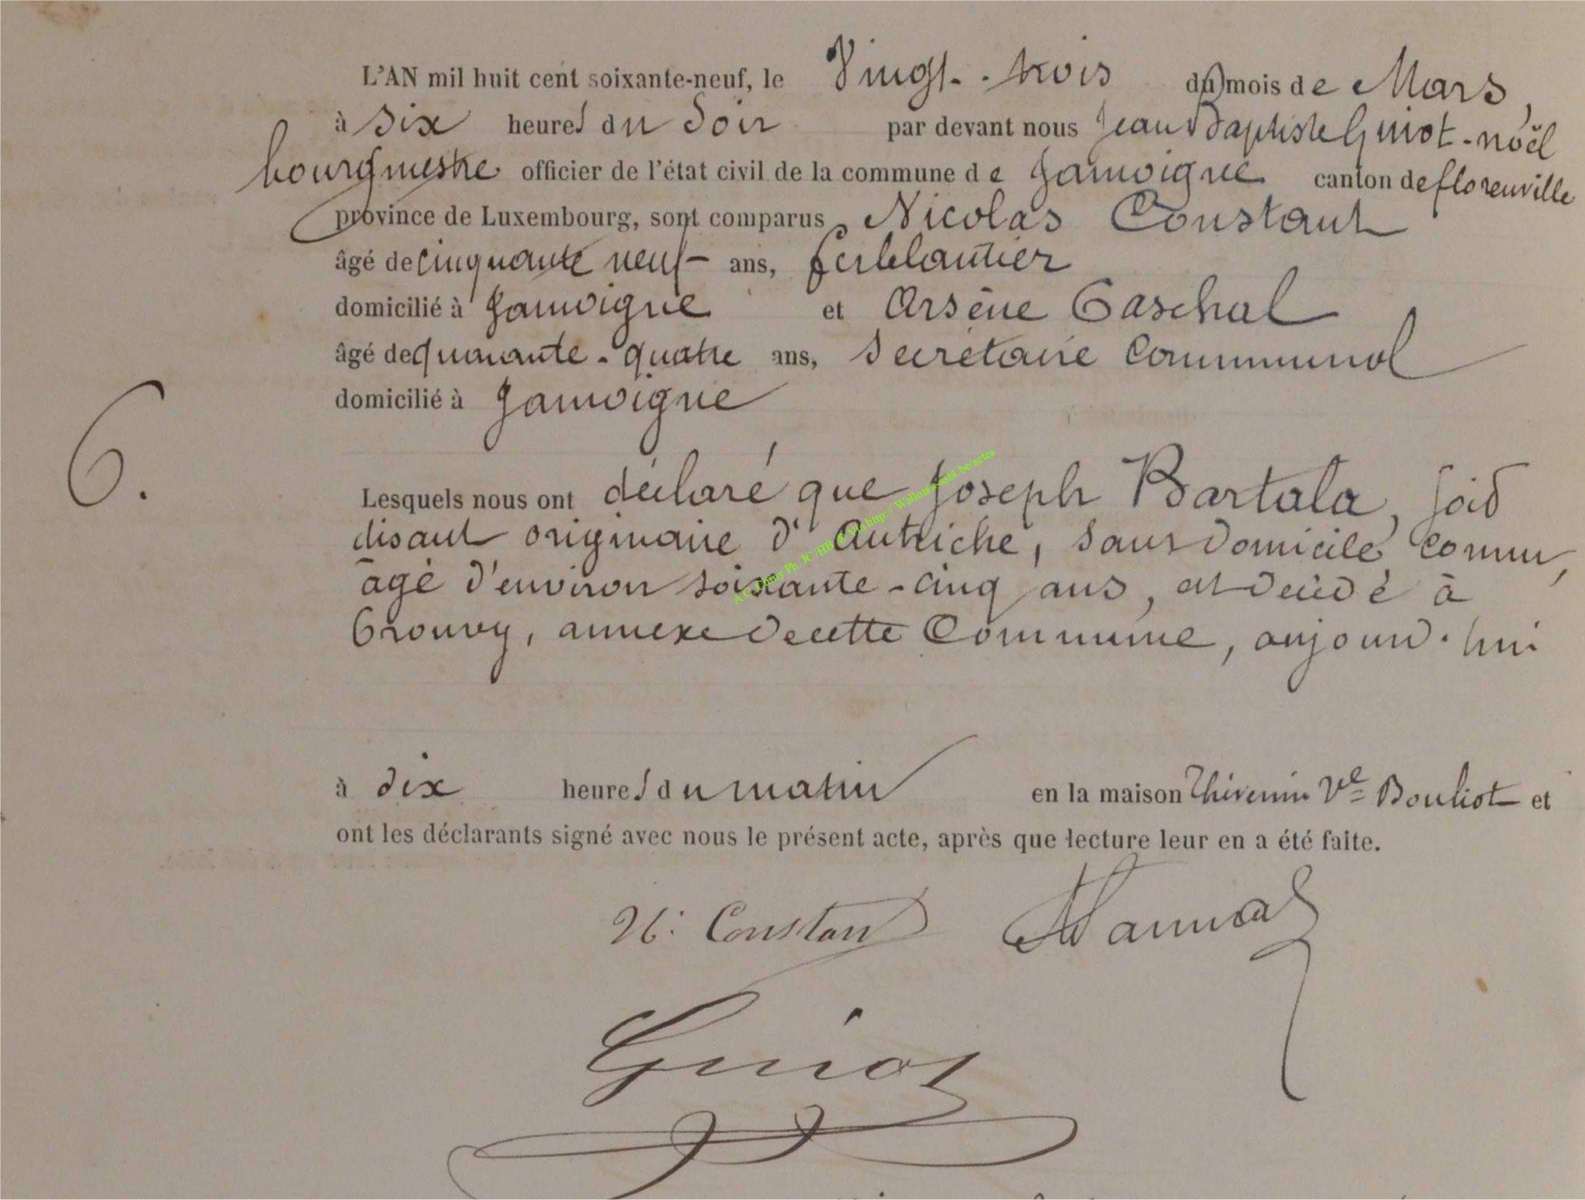 L'AN mil huit cent soixante-neuf, le Vingt-trois du mois de Mars,
à six heures du Soir par devant nous Jean Baptiste Guiot-noël
bourgmestre officier de l'état civil de la commune de Jamoigne canton de florenville
province de Luxembourg, sont comparus Nicolas Constant
âgé de cinquante neuf ans, ferblantier
domicilié à Jamoigne et Arsène Paschal
âgé de quarante-quatre ans, secrétaire communal
domicilié à Jamoigne
6.
Lesquels nous ont déclaré que Joseph Bartala, soid
disant originaire d'Autriche, sans domicile connu,
âgé d'environ soixante-cinq ans, est décédé à
Prouvy, annexe de cette Commune, aujourd'hui
à dix heures du matin en la maison Thivenin Ve Bouliot et
ont les déclarants signé avec nous le présent acte, après que lecture leur en a été faite.
N: Constant
Guiot